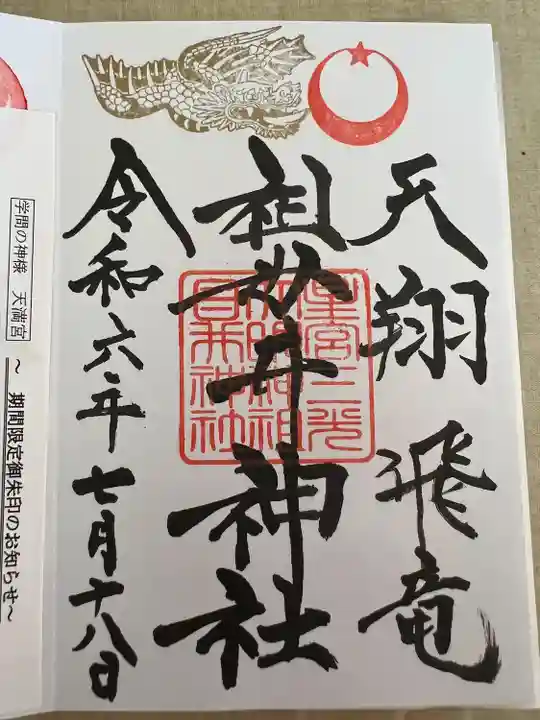 天翔飛竜
祖母井神社
令和六年七月十八日
学問の神様 天満宮 ～ 期間限定御朱印のお知らせ～